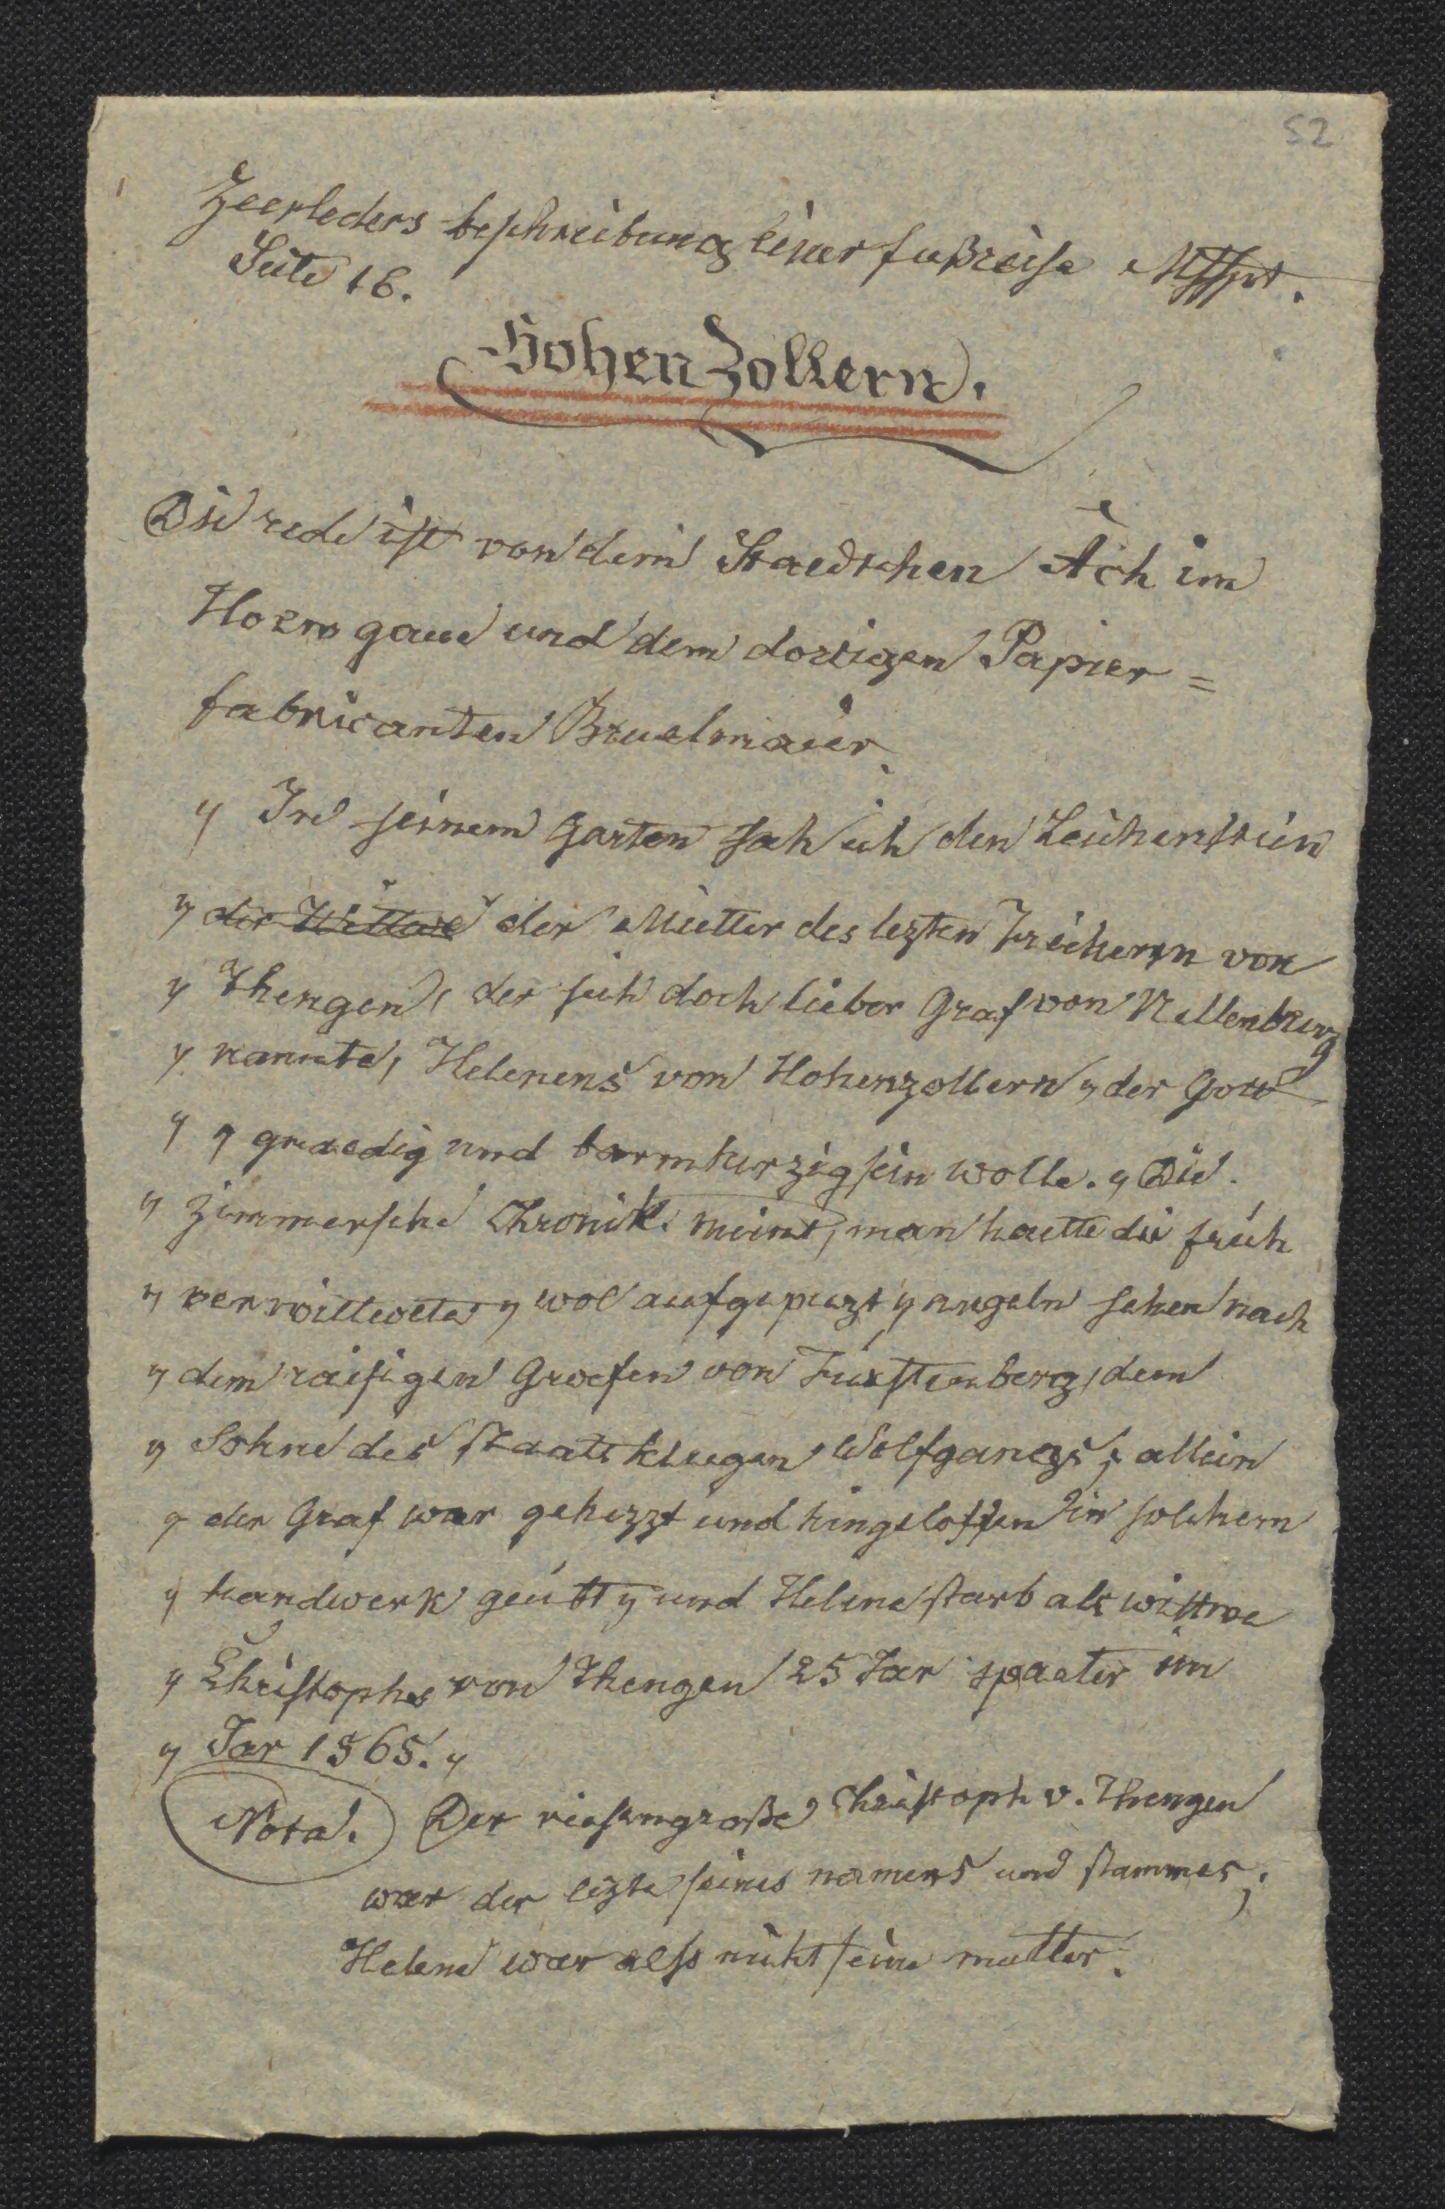 52
Zeerleders beschreibung einer fußreise Msspt.
Seite 16.
Hohen Zollern.
Die rede ist von dem Staedtchen Ach im
Hoewgaue und dem dortigen Papier=
fabricanten Bruelmaier.
„ In seinem Garten sah ich den Leichenstein
„ der Wittwe der Mutter des lezten Freiherrn von
„ Thengen, der sich doch lieber Graf von Nellenburg
„ nannte, Helenens von Hohenzollern „ der Gott
„ „ gnaedig und barmherzig sein wolle. „ Die
„ zimmersche Chronik meint, man haette die früh
„ verwittwete „ wol aufgepuzt „ angeln sehen nach
„ dem raisigen Graefen von Fürstenberg, dem
„ Sohne des staatsklugen Wolfgangs; allein
„ der Graf war gehezzt und hingeloffen in solchem
„ handwerk geübt „ und Helene starb als wittwe
„ Christophs von Thengen 25 Jar spaeter im
„ Jar 1565. „
Nota. Der riesengroße Christoph v. Thengen
war der lezte seines namens und stammes;
Helene war also nicht seine mutter.